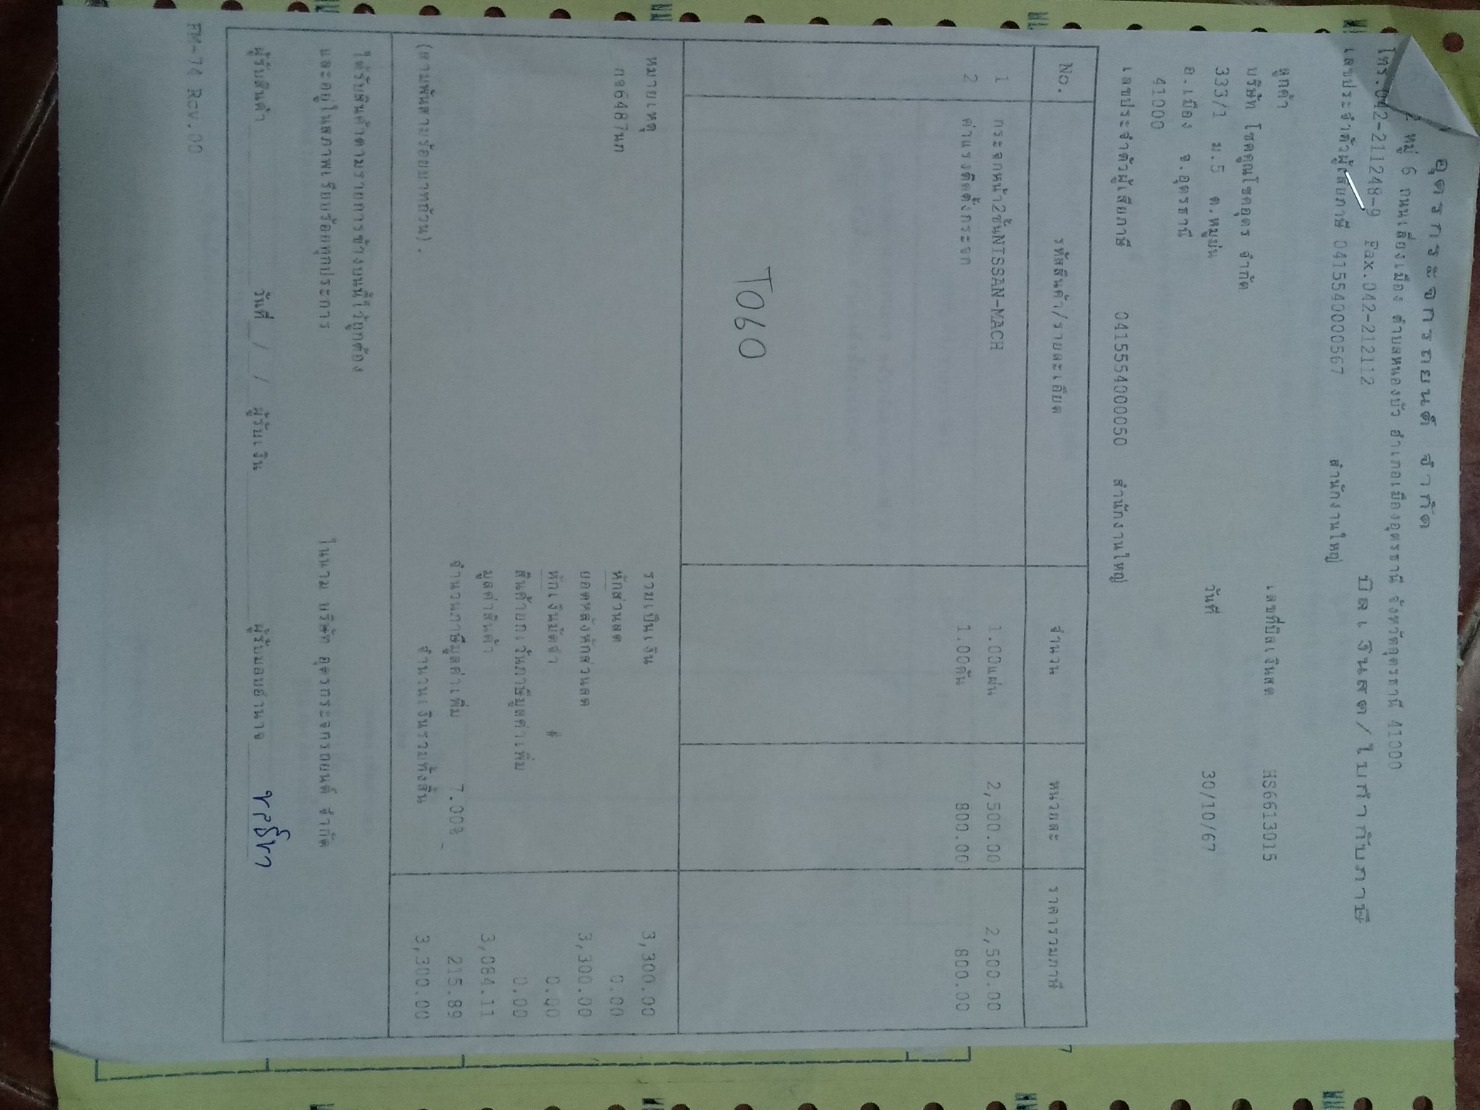 อุดรกระจกรถยนต์ จำกัด
2 หมู่ 6 ถนนเลี่ยงเมือง ตำบลหนองบัว อำเภอเมืองอุดรธานี จังหวัดอุดรธานี 41000
โทร.042-211248-9 Fax.042-212112
บิลเงินสด/ใบกำกับภาษี
เลขประจำตัวผู้เสียภาษี 0415540000567 สำนักงานใหญ่
ลูกค้า เลขที่บิลเงินสด HS6613015
บริษัท โชคคูณโชคอุดร จำกัด
333/1 ม.5 ต.หมูม่น วันที่ 30/10/67
อ.เมือง จ.อุดรธานี
41000
เลขประจำตัวผู้เสียภาษี 0415554000050 สำนักงานใหญ่
No. รหัสสินค้า/รายละเอียด จำนวน หน่วยละ ราคารวมภาษี
1 กระจกหน้า2ชั้นNISSAN-MACH 1.00แผ่น 2,500.00 2,500.00
2 ค่าแรงติดตั้งกระจก 1.00คัน 800.00 800.00
T060
หมายเหตุ รวมเป็นเงิน 3,300.00
กจ6487นภ หักส่วนลด 0.00
ยอดหลังหักส่วนลด 3,300.00
หักเงินมัดจำ # 0.00
สินค้ายกเว้นภาษีมูลค่าเพิ่ม 0.00
มูลค่าสินค้า 3,084.11
จำนวนภาษีมูลค่าเพิ่ม 7.00% 215.89
(สามพันสามร้อยบาทถ้วน). จำนวนเงินรวมทั้งสิ้น 3,300.00
ได้รับสินค้าตามรายการข้างบนนี้ไว้ถูกต้อง
และอยู่ในสภาพเรียบร้อยทุกประการ ในนาม บริษัท อุดรกระจกรถยนต์ จำกัด
ผู้รับสินค้า วันที่ / / ผู้รับเงิน ผู้รับมอบอำนาจ
FM-74 Rev.00